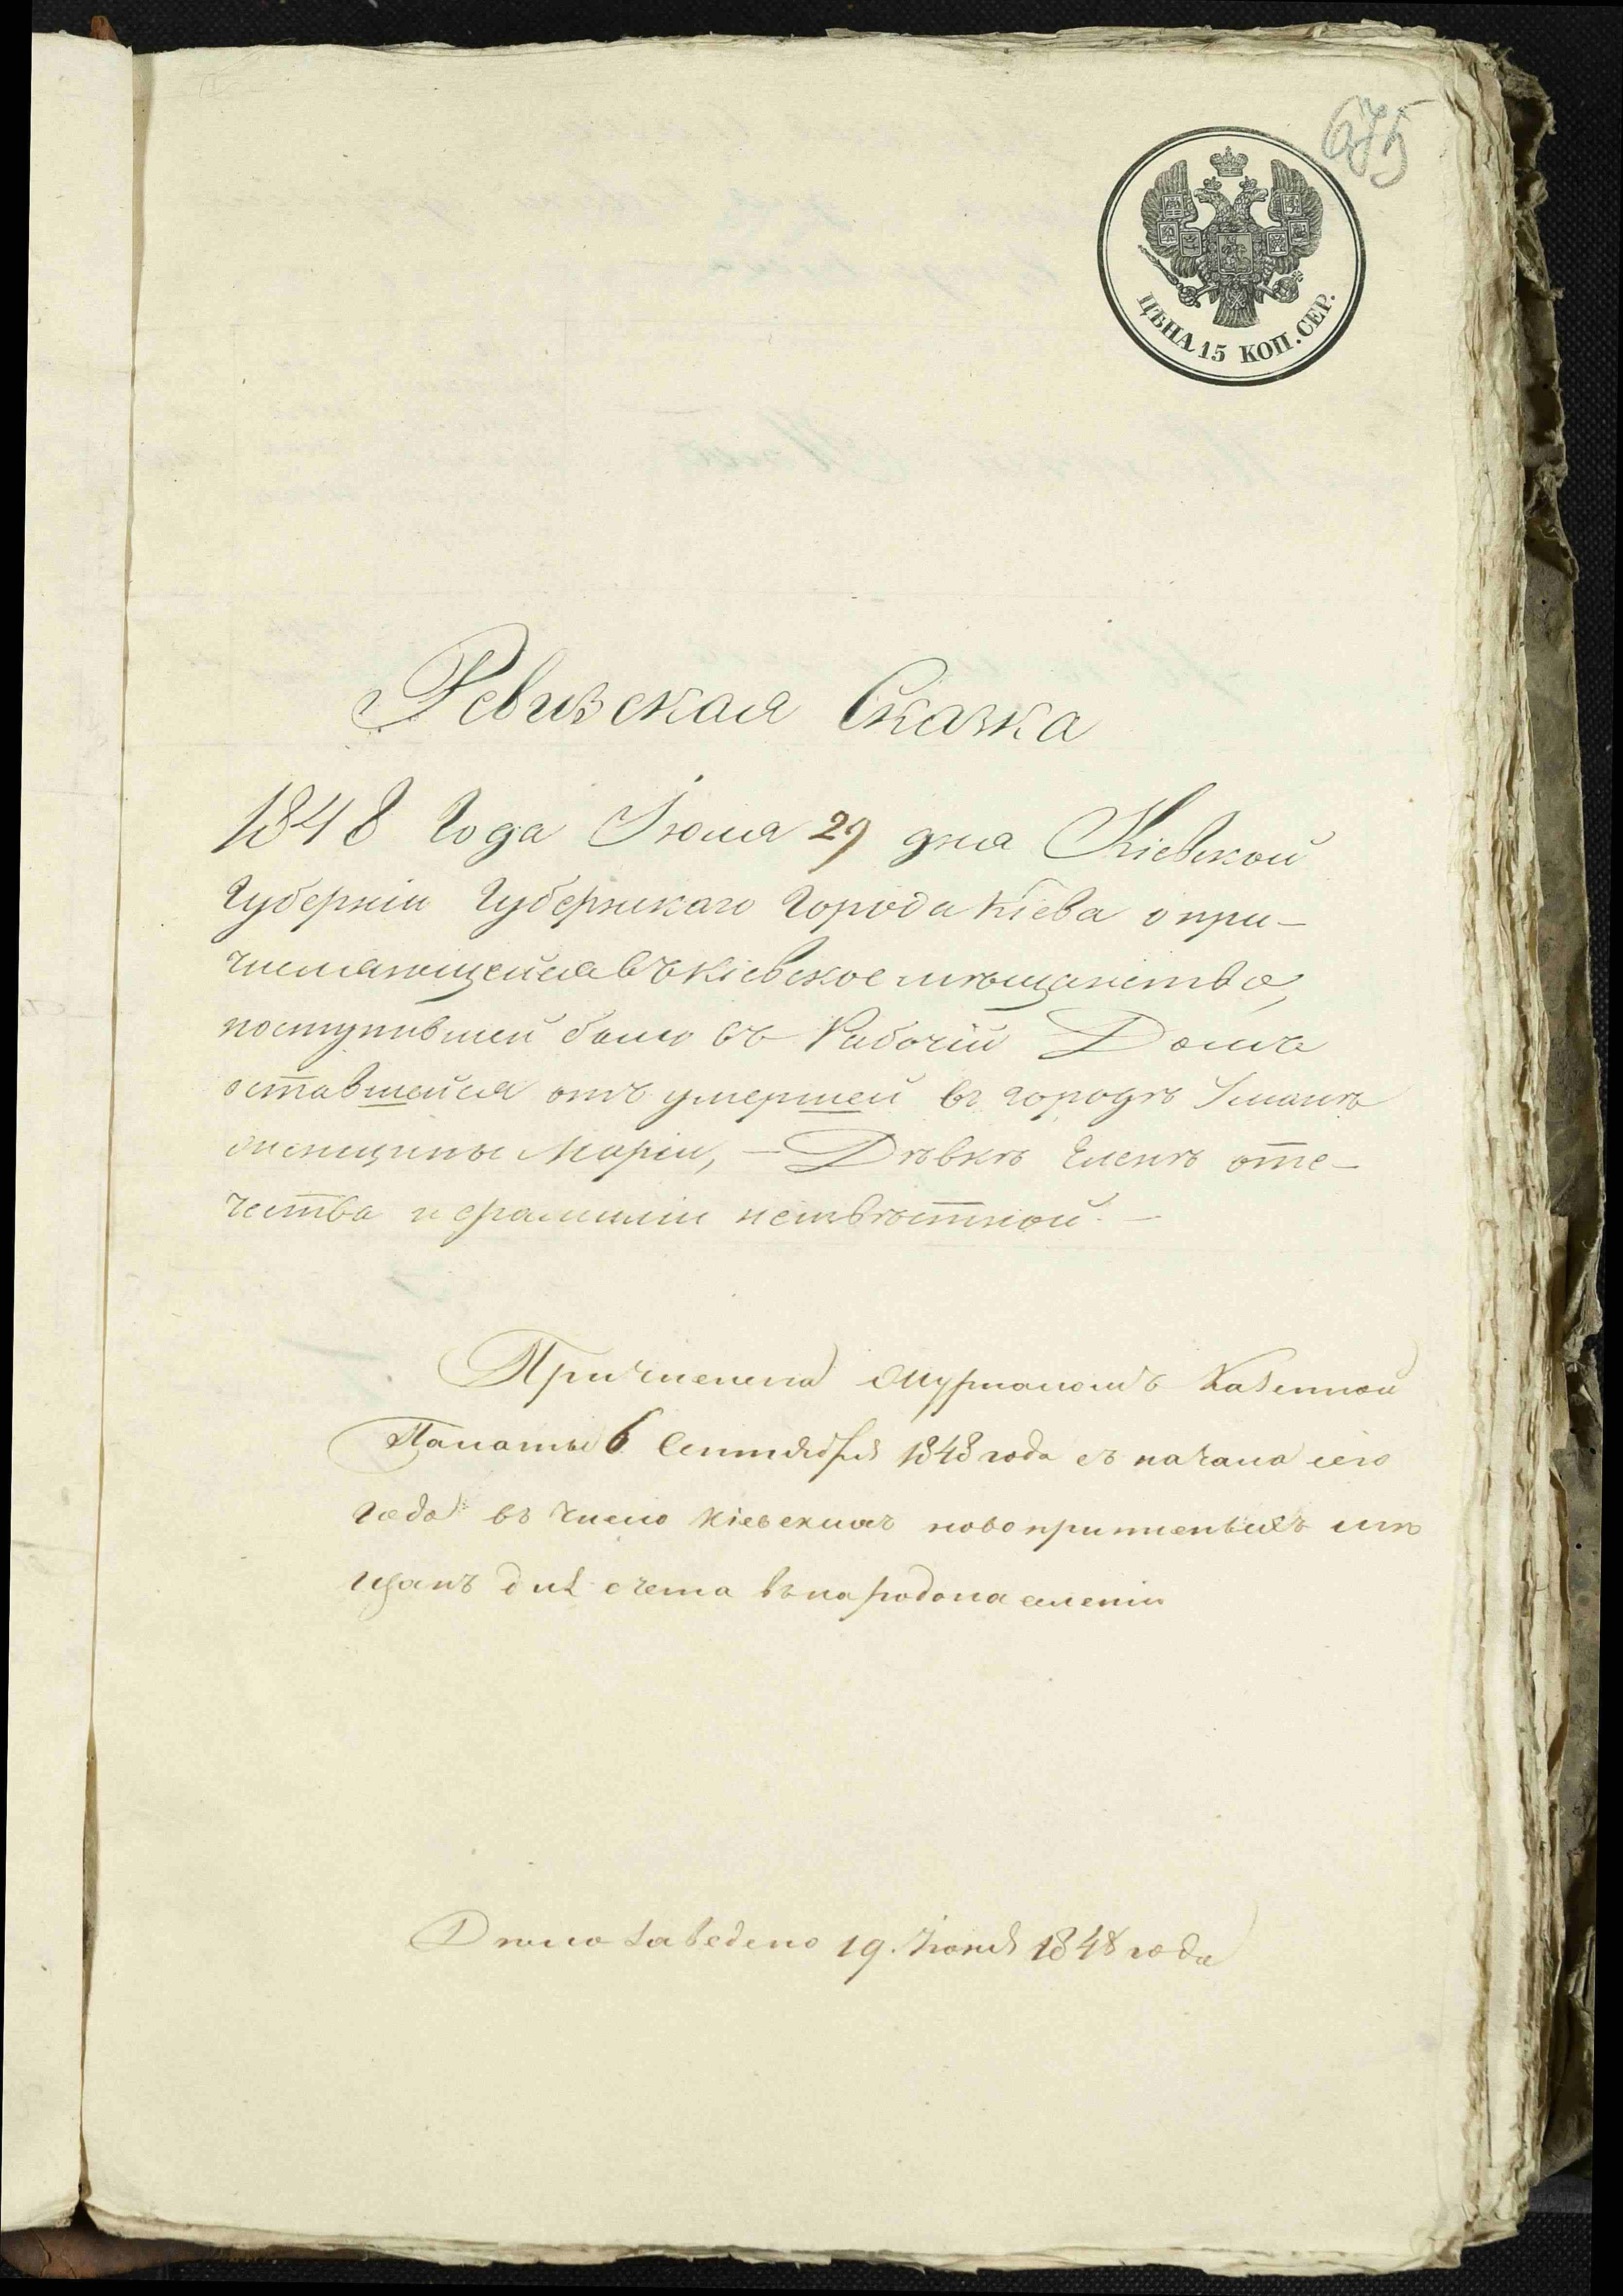 675
ЦѢНА 15 КОП. СЕР.
Ревизская Сказка
1848 Года Іюля 29 дня Кіевской
Губерніи Губернскаго Города Кіева о при-
числяющейся въ Кіевское мѣщанство,
поступившей было въ Рабочій Домъ
оставшейся отъ умершей въ городѣ Уманѣ
женщины Маріи, - Дѣвкѣ Еленѣ оте-
чества и фамиліи неизвѣстной. -
Причислена Журналомъ Казенной
Палаты 6 Сентября 1848 года съ начала сего
года въ число Кіевскихъ новопричисленныхъ мѣ
щанъ для счета въ народонаселеніи
Дѣло заведено 19. Іюня 1848 года